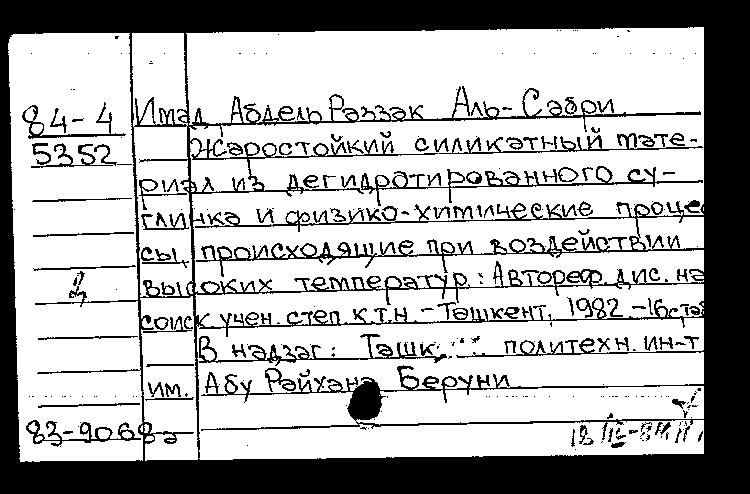 84-4 Имад Абдель Раззак Аль-Сабри.
5352 Жаростойкий силикатный мате-
риал из дегидратированного су-
глинка и физико-химические процес
сы, происходящие при воздействии
2 высоких температур: Автореф. дис. на
соиск. учен. степ. к.т.н. - Ташкент, 1982 - 16 стр
В надзаг: Ташк. политехн. ин-т
им. Абу Райхана Беруни.
83-9068а